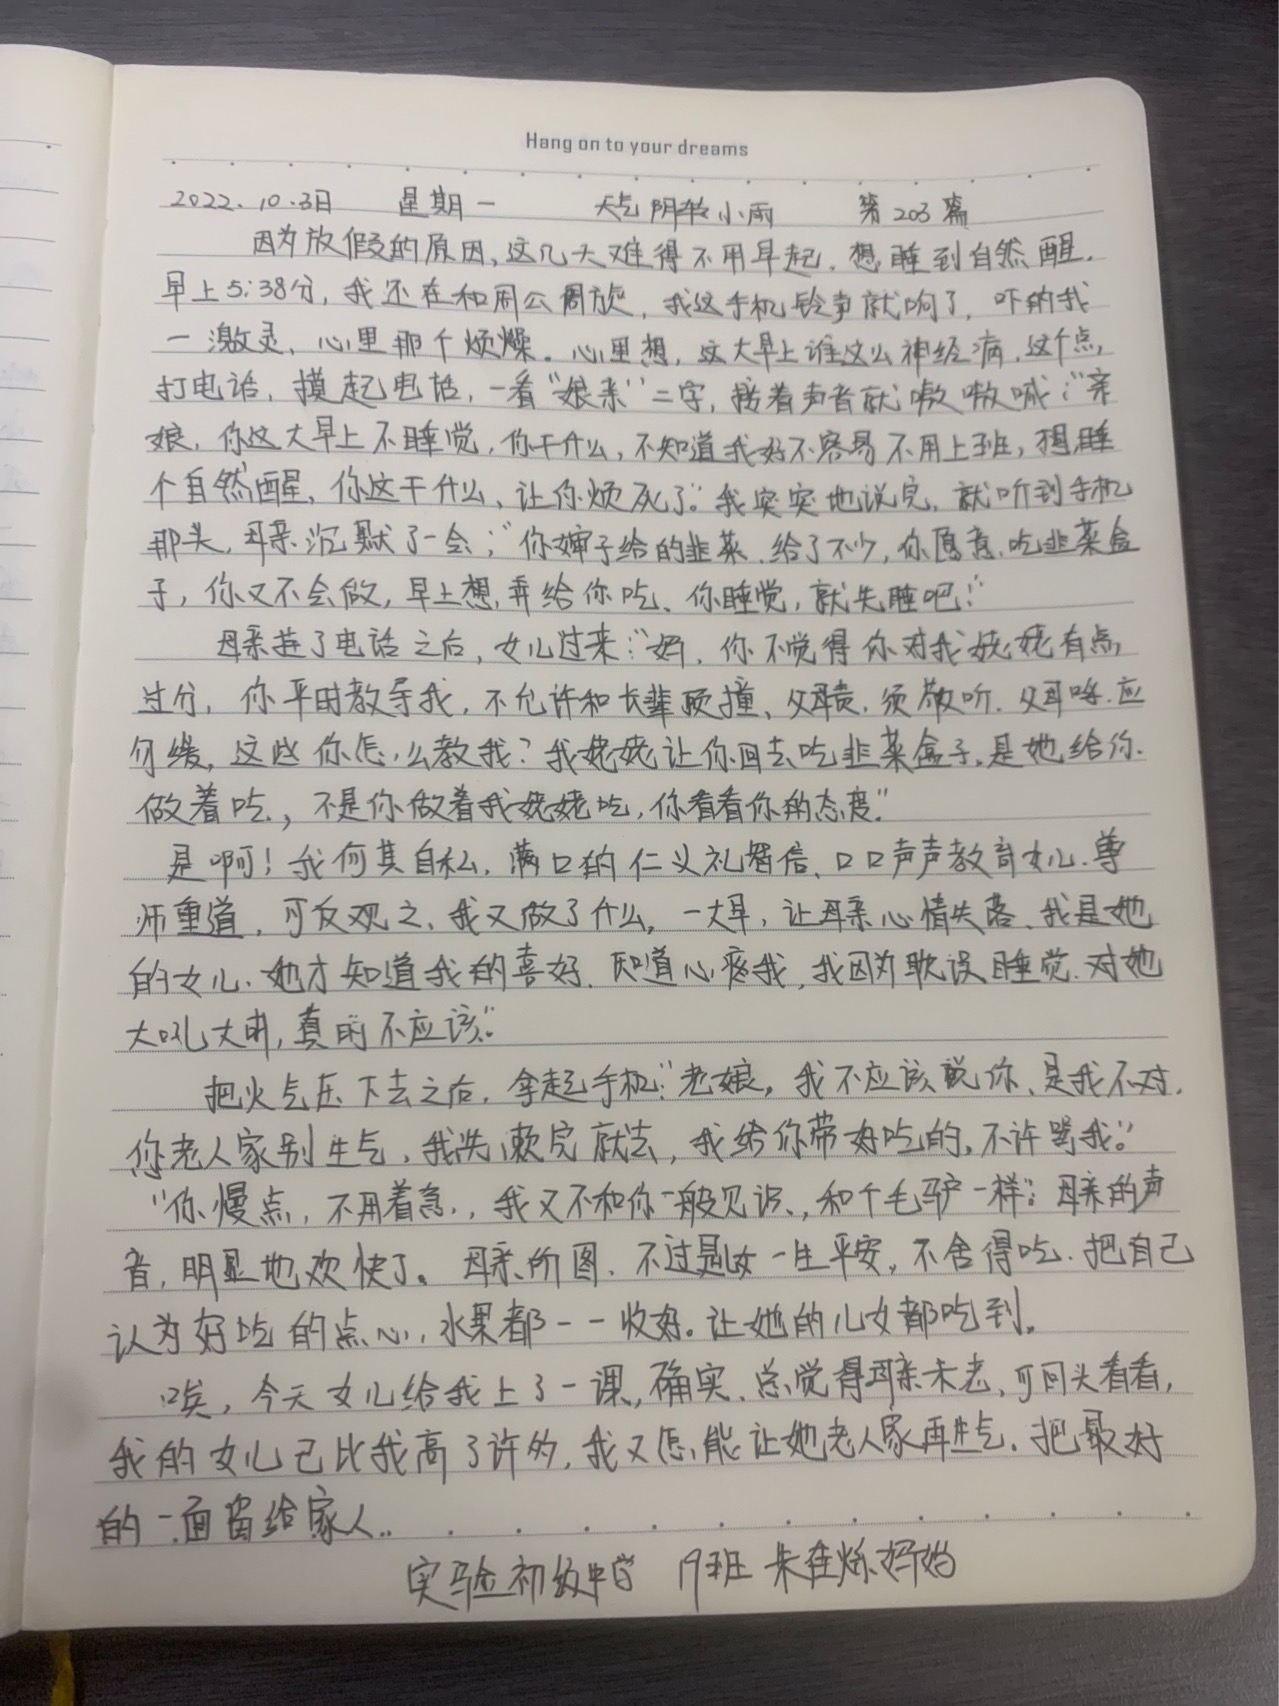 Hang on to your dreams
2022.10.3日 星期一 天气阴转小雨 第203篇
因为放假的原因,这几天难得不用早起,想睡到自然醒.
早上5:38分,我还在和周公周旋,我这手机铃声就响了,吓的我
一激灵,心里那个烦燥。心里想,这大早上谁这么神经病,这个点,
打电话,摸起电话,一看“娘亲”二字,接着声音就嗷嗷喊:“亲
娘,你这大早上不睡觉,你干什么,不知道我好不容易不用上班,想睡
个自然醒,你这干什么、让你烦死了”我突突地说完,就听到手机
那头,母亲沉默了一会;“你婶子给的韭菜,给了不少,你愿意吃韭菜盒
子,你又不会做,早上想弄给你吃、你睡觉,就先睡吧!”
母亲挂了电话之后,女儿过来:“妈,你不觉得你对我姥姥有点,
过分,你平时教导我,不允许和长辈顶撞、父母责,须敬听,父母呼,应
勿缓,这些你怎么教我?我姥姥让你回去吃韭菜盒子,是她给你
做着吃,不是你做着我姥姥吃,你看看你的态度”
是啊!我何其自私,满口的仁义礼智信、口口声声教育女儿尊
师重道,可反观之,我又做了什么,一大早,让母亲心情失落、我是她
的女儿,她才知道我的喜好,知道心疼我,我因为耽误睡觉,对她
大吼大叫,真的不应该”
把火气压下去之后,拿起手机:“老娘,我不应该说你、是我不对,
你老人家别生气,我洗漱完就去,我给你带好吃的,不许骂我”
“你慢点,不用着急,我又不和你一般见识,和个毛驴一样”母亲的声
音,明显地欢快了。母亲所图,不过是女一生平安,不舍得吃,把自己
认为好吃的点心,水果都一一收好。让她的儿女都吃到。
唉,今天女儿给我上了一课,确实、总觉得母亲未老,可回头看看,
我的女儿已比我高了许多,我又怎能让她老人家再生气,把最好
的一面留给家人..
实验初级中学 19班 朱佳烁妈妈